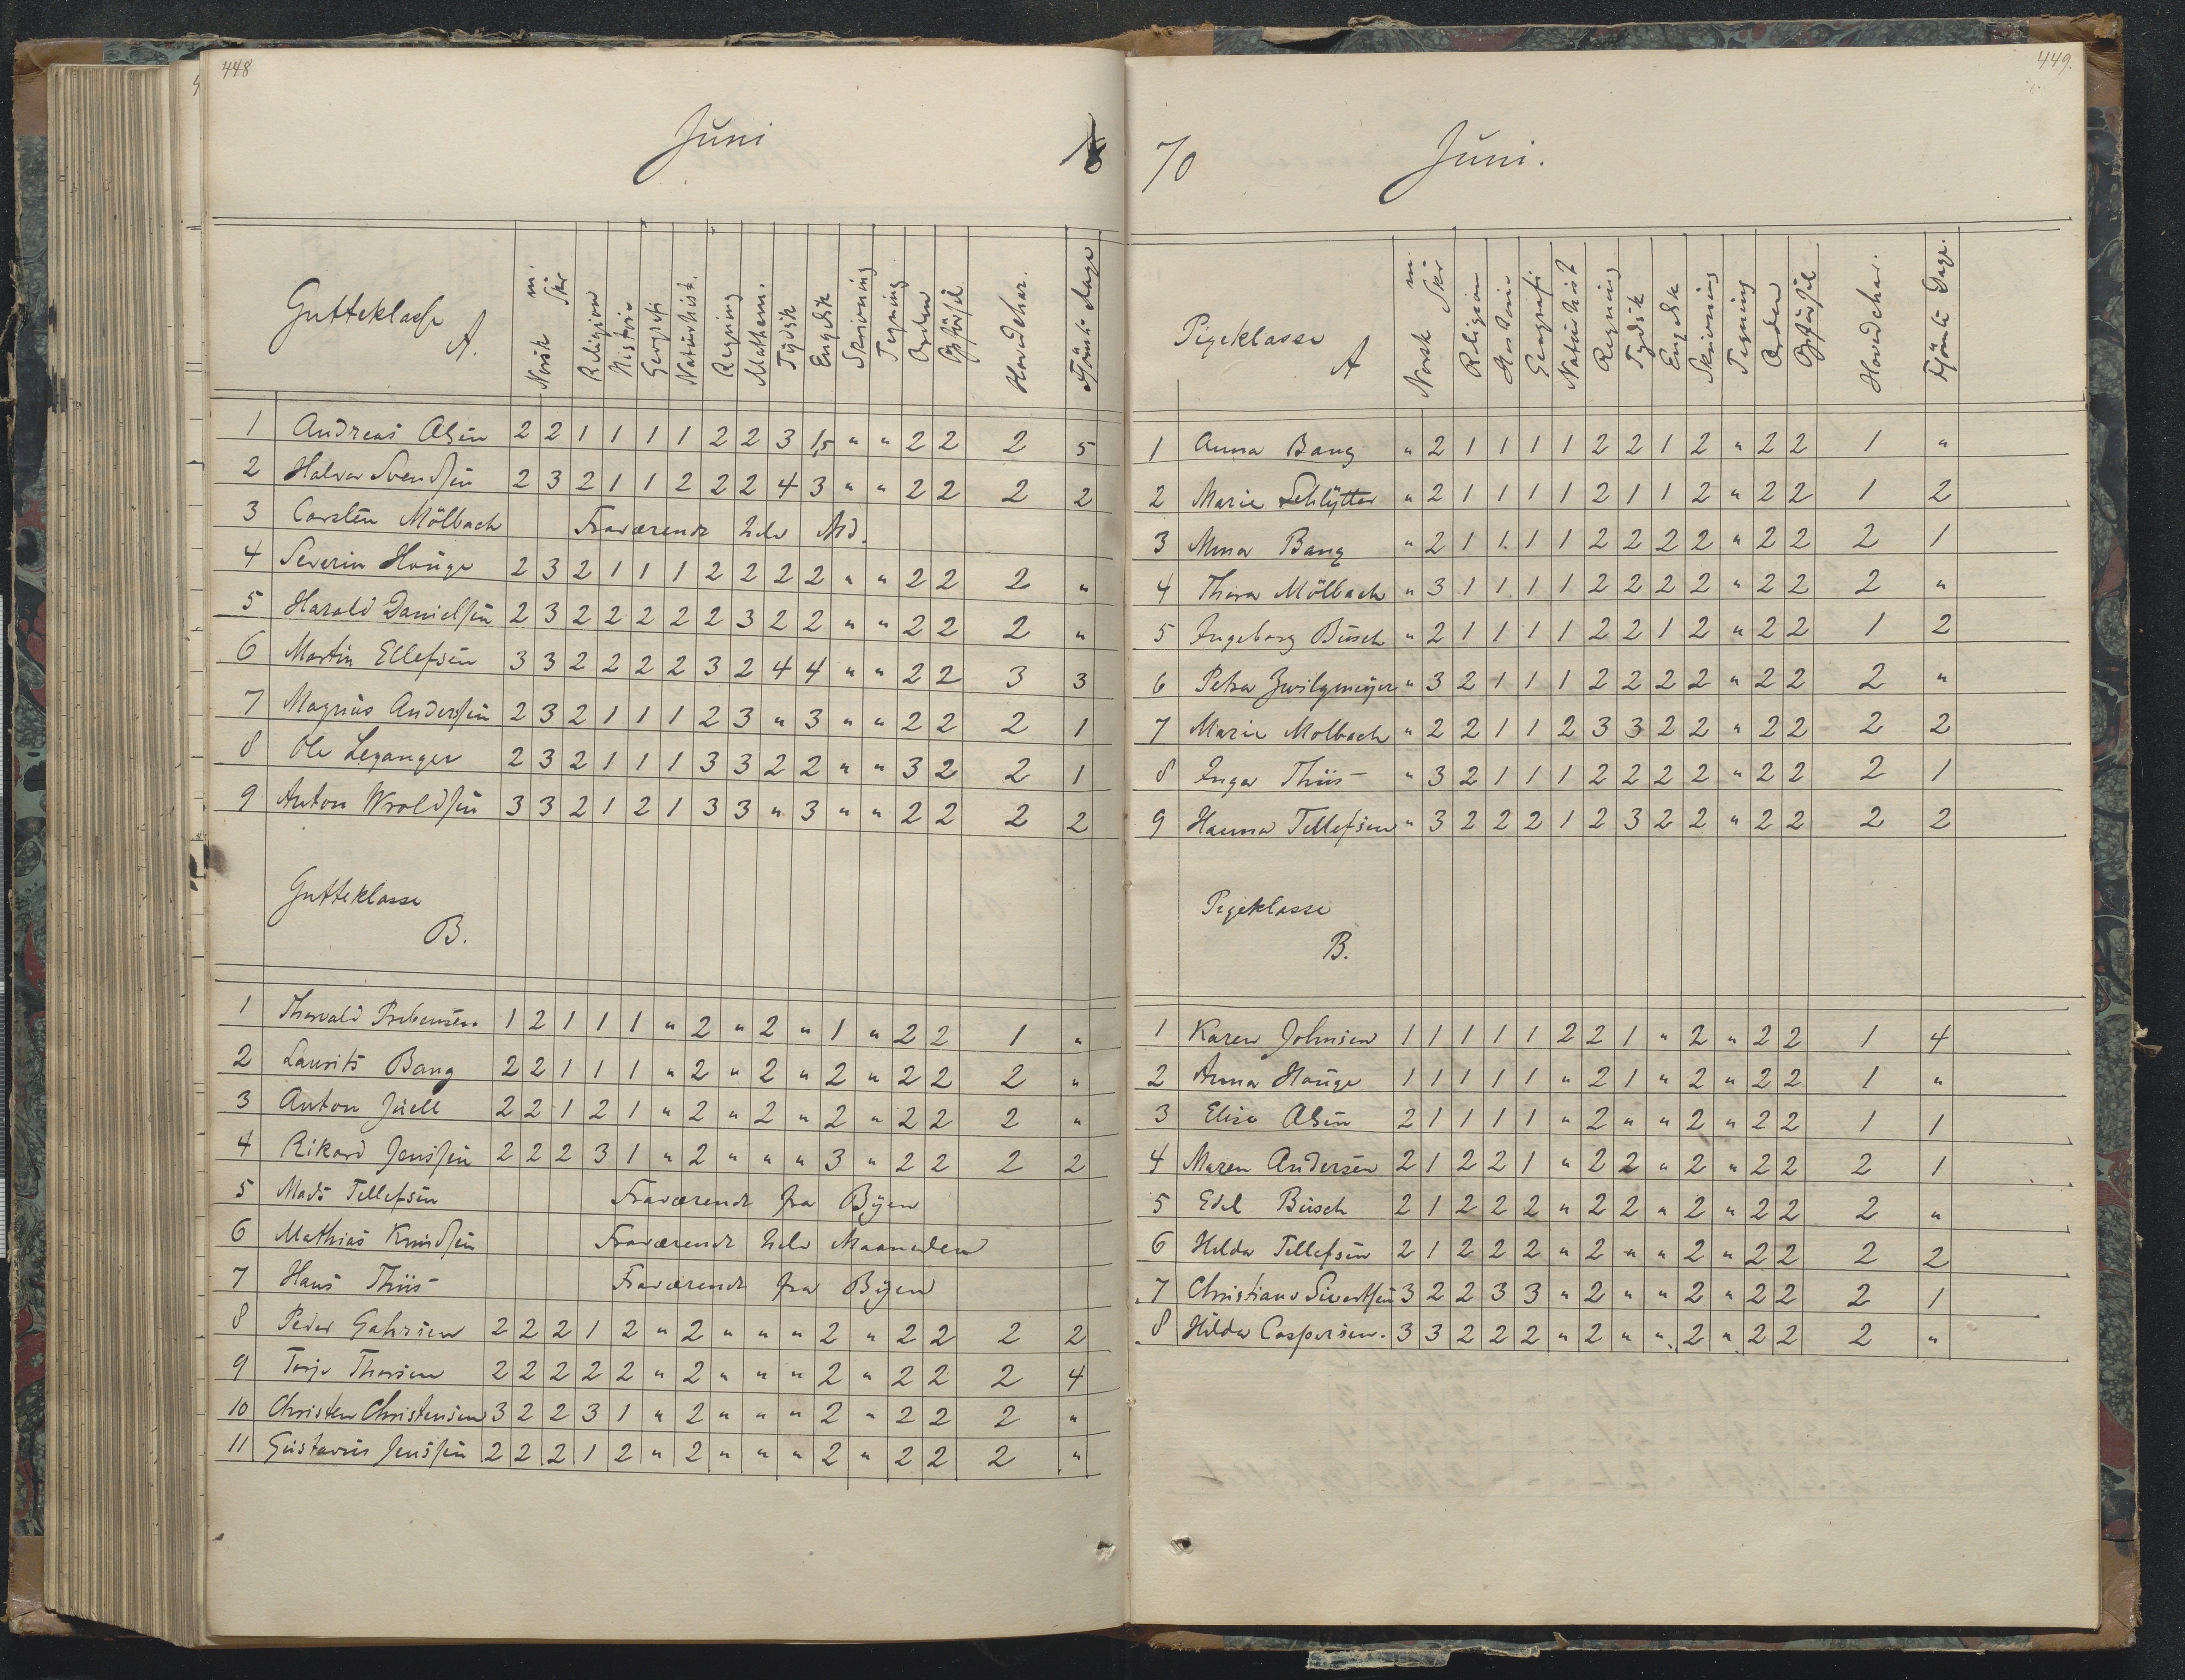 448
Juni
Gutteklasse A.
Norsk m. Skr Religion Historie Geografi Naturhist. Regning Mathem. Tydsk Engelsk Skrivning Tegning Orden Opförsel Hovedchar. Forsömte Dage
1 Andreas Olsen 2 2 1 1 1 1 2 2 3 1,5 " " 2 2 2 5
2 Halvor Svendsen 2 3 2 1 1 2 2 2 4 3 " " 2 2 2 2
3 Carsten Mölbach Fraværende hele Tid.
4 Severin Houge 2 3 2 1 1 1 2 2 2 2 " " 2 2 2 "
5 Harald Danielsen 2 3 2 2 2 2 2 3 2 2 " " 2 2 2 "
6 Martin Ellefsen 3 3 2 2 2 2 3 2 4 4 " " 2 2 3 3
7 Magnus Andersen 2 3 2 1 1 1 2 3 " 3 " " 2 2 2 1
8 Ole Leganger 2 3 2 1 1 1 3 3 2 2 " " 3 2 2 1
9 Anton Wroldsen 3 3 2 1 2 1 3 3 " 3 " " 2 2 2 2
Gutteklasse
B.
1 Thorvald Prebensen 1 2 1 1 1 " 2 " 2 " 1 " 2 2 1 "
2 Laurits Bang 2 2 1 1 1 " 2 " 2 " 2 " 2 2 2 "
3 Anton Juell 2 2 1 2 1 " 2 " 2 " 2 " 2 2 2 "
4 Rikard Jenssen 2 2 2 3 1 " 2 " " " 3 " 2 2 2 2
5 Mads Tellefsen Fraværende fra Byen
6 Mathias Knudsen Fraværende hele Maaneden
7 Hans Thiis Fraværende fra Byen
8 Peder Gahrsen 2 2 2 1 2 " 2 " " " 2 " 2 2 2 2
9 Terje Thorsen 2 2 2 2 2 " 2 " " " 2 " 2 2 2 4
10 Christen Christensen 3 2 2 3 1 " 2 " " " 2 " 2 2 2 "
11 Gustavus Jenssen 2 2 2 1 2 " 2 " " " 2 " 2 2 2 "
449.
70 Juni.
Pigeklasse A
Norsk m Skr Religion Historie Geografi Naturhist Regning Tydsk Engelsk Skrivning Tegning Orden Opförsel Hovedchar. Forsömte Dage.
1 Anna Bang " 2 1 1 1 1 2 2 1 2 " 2 2 1 "
2 Marie Schlytter " 2 1 1 1 1 2 1 1 2 " 2 2 1 2
3 Mina Bang " 2 1 1 1 1 2 2 2 2 " 2 2 2 1
4 Thora Mölbach " 3 1 1 1 1 2 2 2 2 " 2 2 2 "
5 Ingeborg Busch " 2 1 1 1 1 2 2 1 2 " 2 2 1 2
6 Petra Zwilgmeyer " 3 2 1 1 1 2 2 2 2 " 2 2 2 "
7 Marie Molbach " 2 2 1 1 2 3 3 2 2 " 2 2 2 2
8 Inga Thiis " 3 2 1 1 1 2 2 2 2 " 2 2 2 1
9 Hanna Tellefsen " 3 2 2 2 1 2 3 2 2 " 2 2 2 2
Pigeklasse
B.
1 Karen Johnsen 1 1 1 1 1 2 2 1 " 2 " 2 2 1 4
2 Anna Houge 1 1 1 1 1 " 2 1 " 2 " 2 2 1 "
3 Elise Olsen 2 1 1 1 1 " 2 " " 2 " 2 2 1 1
4 Maren Andersen 2 1 2 2 1 " 2 2 " 2 " 2 2 2 1
5 Edel Busch 2 1 2 2 2 " 2 2 " 2 " 2 2 2 "
6 Hilda Tellefsen 2 1 2 2 2 " 2 " " 2 " 2 2 2 2
7 Christiane Sivertsen 3 2 2 3 3 " 2 " " 2 " 2 2 2 1
8 Hilda Caspersen. 3 3 2 2 2 " 2 " " 2 " 2 2 2 "